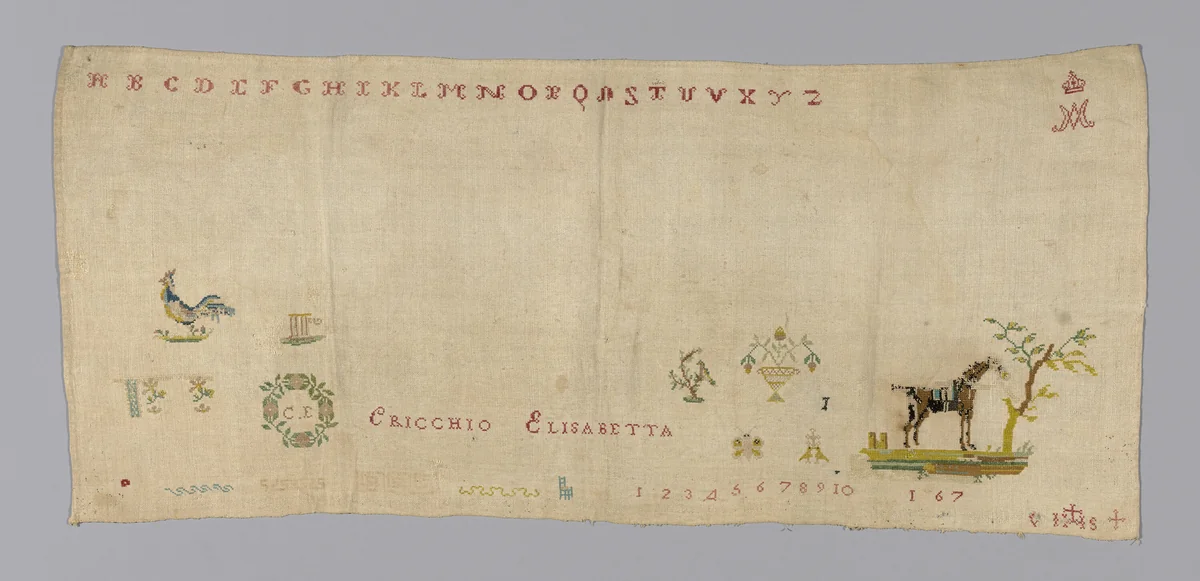 A B C D E F G H I K L M N O P Q R S T U V X Y Z
M
C.E
CRICCHIO ELISABETTA
1 2 3 4 5 6 7 8 9 10 1 67
V IHS